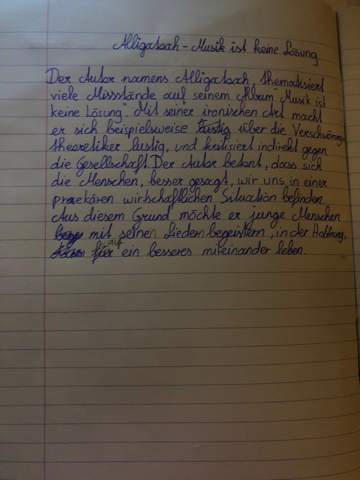 Alligatoah - Musik ist keine Lösung
Der Autor namens Alligatoah, thematisiert
viele Missstände auf seinem Album "Musik ist
keine Lösung". Mit seiner ironischen Art macht
er sich beispielsweise lustig über die Verschwörungs-
theoretiker lustig, und kritisiert indirekt gegen
die Gesellschaft. Der Autor betont, dass sich
die Menschen, besser gesagt, wir uns in einer
praekären wirtschaftlichen Situation befinden.
Aus diesem Grund möchte er junge Menschen
mit seinen Liedern begeistern, in der Hoffnung,
auf ein besseres miteinander leben.